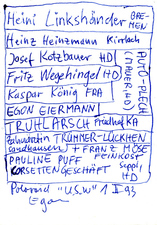 Heini Linkshänder BREMEN
Heinz Heinzmann Kirrlach
Josef Kotzbauer HD
Fritz Wegehingel HD
Kaspar König FRA
EGON EIERMANN
TRUHLARSCH Friedhof KA
AUTO-PLECH
Zahnarztin TRÜMMER-LÜCKHEN
Sandhausen + FRANZ MÖSE
PAULINE PUFF FEINKOST
KORSETTENGESCHÄFT Seppl HD
Polaroid "U.S.W" 1 II 93
Egon